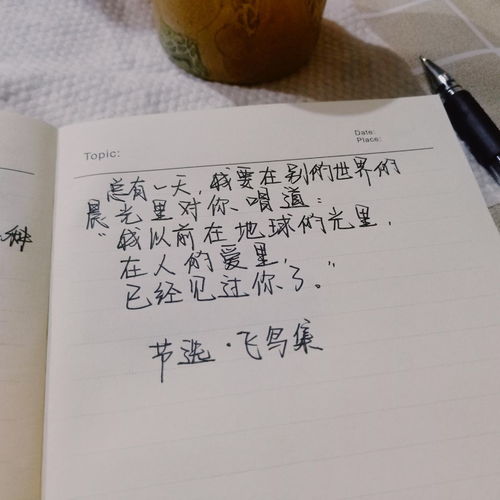 Date:
Place:
Topic:
总有一天，我要在别的世界的
晨光里对你唱道：
“我以前在地球的光里，
在人的爱里，
已经见过你了。”
节选·飞鸟集
种